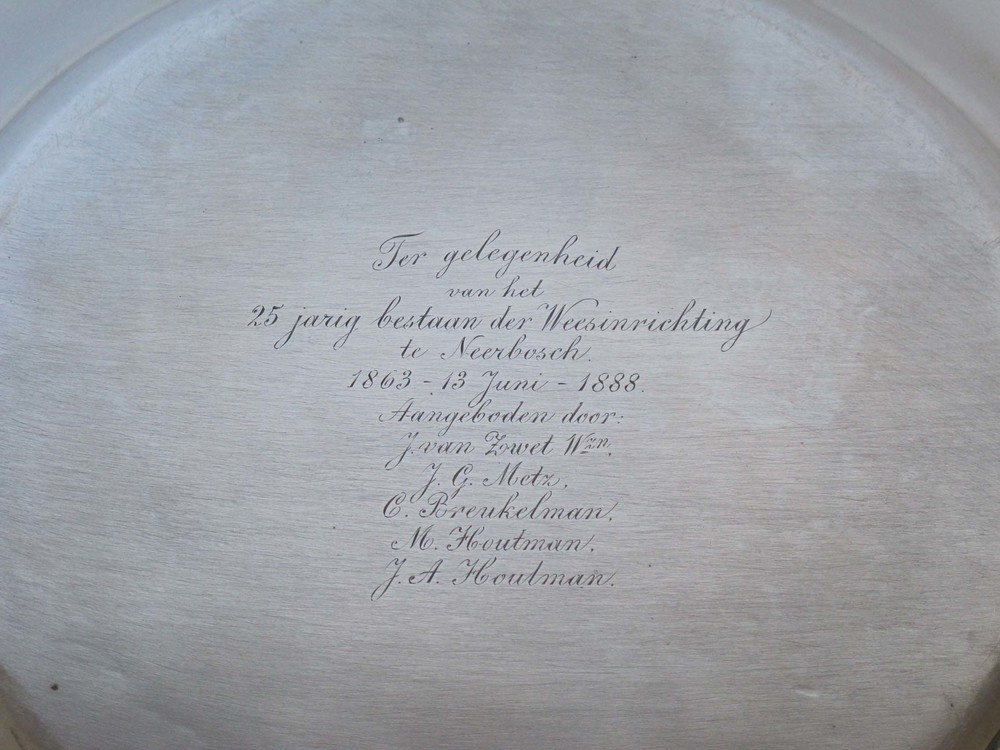 Ter gelegenheid
van het
25 jarig bestaan der Weesinrichting
te Neerbosch.
1863 - 13 Juni - 1888.
Aangeboden door:
J. van Zwet Wzn.
J. G. Metz.
C. Breukelman.
M. Houtman.
J. A. Houtman.